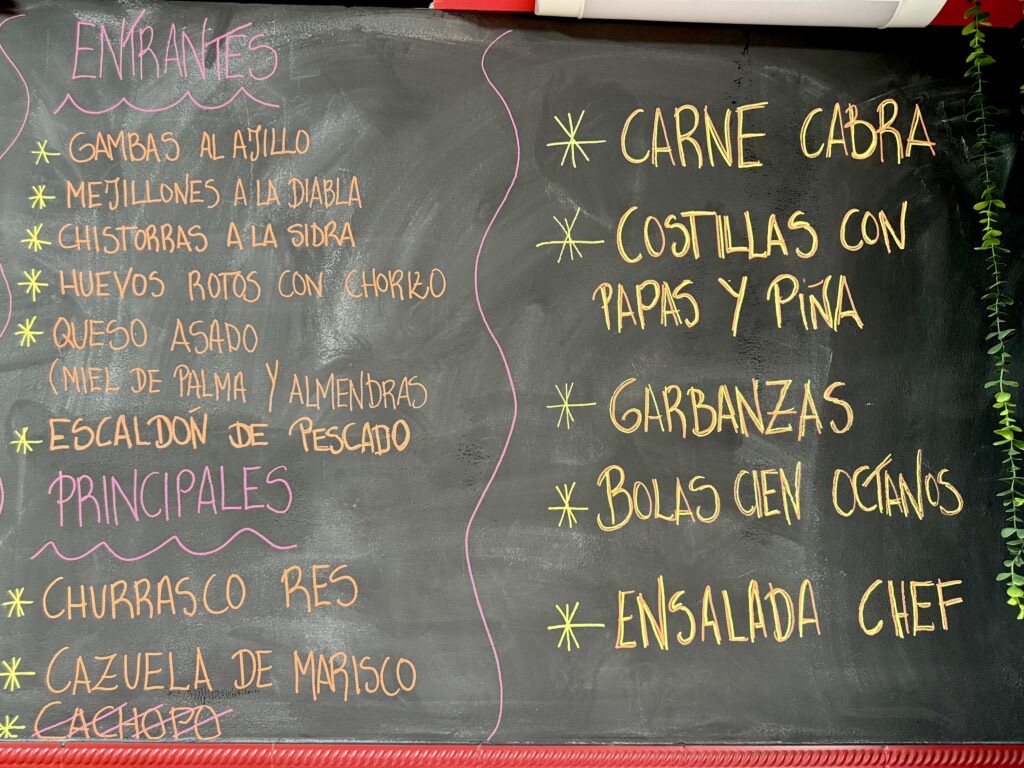 ENTRANTES
GAMBAS AL AJILLO
MEJILLONES A LA DIABLA
CHISTORRAS A LA SIDRA
HUEVOS ROTOS CON CHORIZO
QUESO ASADO
(MIEL DE PALMA Y ALMENDRAS
ESCALDÓN DE PESCADO
PRINCIPALES
CHURRASCO RES
CAZUELA DE MARISCO
CACHOPO
CARNE CABRA
COSTILLAS CON
PAPAS Y PIÑA
GARBANZAS
BOLAS CIEN OCTANOS
ENSALADA CHEF